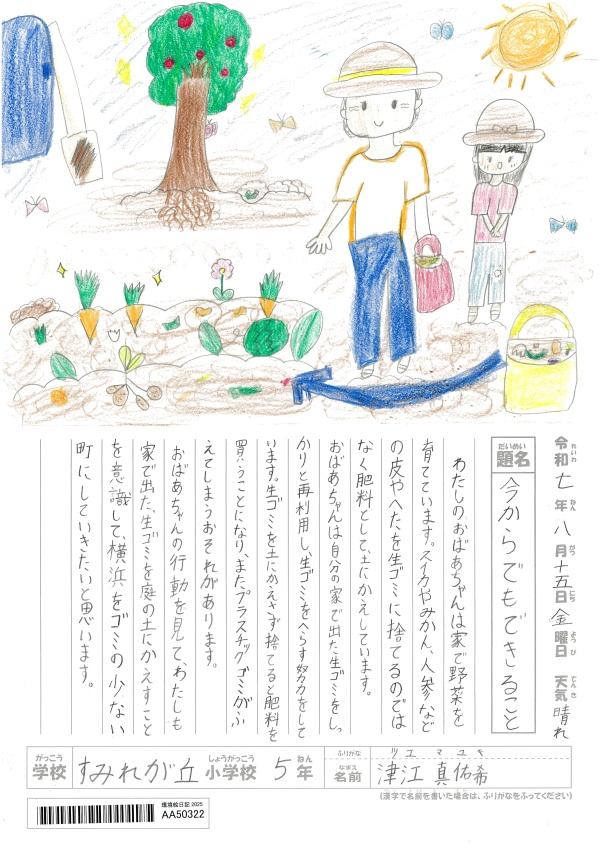 令和七年八月十五日金曜日 天気晴れ
れいわ ねん がつ にち ようび てんき
だいめい
題名 今からでもできること
わたしのおばあちゃんは家で野菜を
育てています。スイカやみかん、人参など
の皮やへたを生ゴミに捨てるのでは
なく肥料として、土にかえしています。
おばあちゃんは自分の家で出た生ゴミをしっ
かりと再利用し、生ゴミをへらす努力をして
います。生ゴミを土にかえさず捨てると肥料を
買うことになり、またプラスチックゴミがふ
えてしまうおそれがあります。
おばあちゃんの行動を見て、わたしも
家で出た、生ゴミを庭の土にかえすこと
を意識して、横浜をゴミの少ない
町にしていきたいと思います。
がっこう しょうがっこう ねん ふりがな ツエ マユキ
学校 すみれが丘 小学校 5年 なまえ 名前 津江 真佑希
(漢字で名前を書いた場合は、ふりがなをふってください)
環境絵日記 2025
AA50322